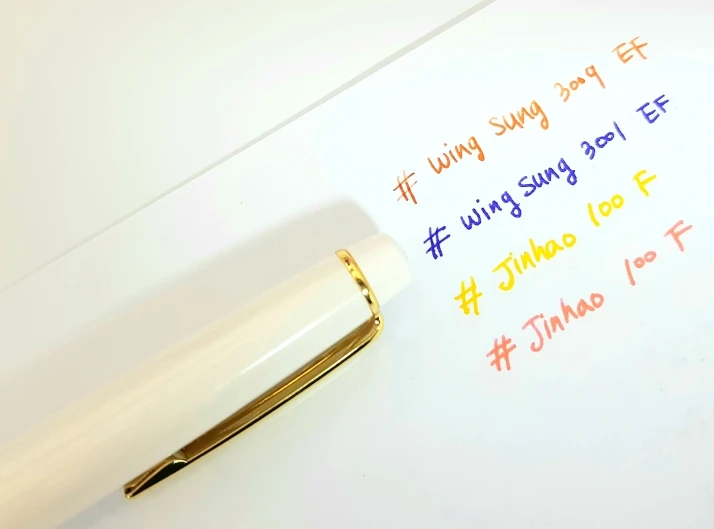 # Wing Sung 3009 EF
# Wing Sung 3001 EF
# Jinhao 100 F
# Jinhao 100 F